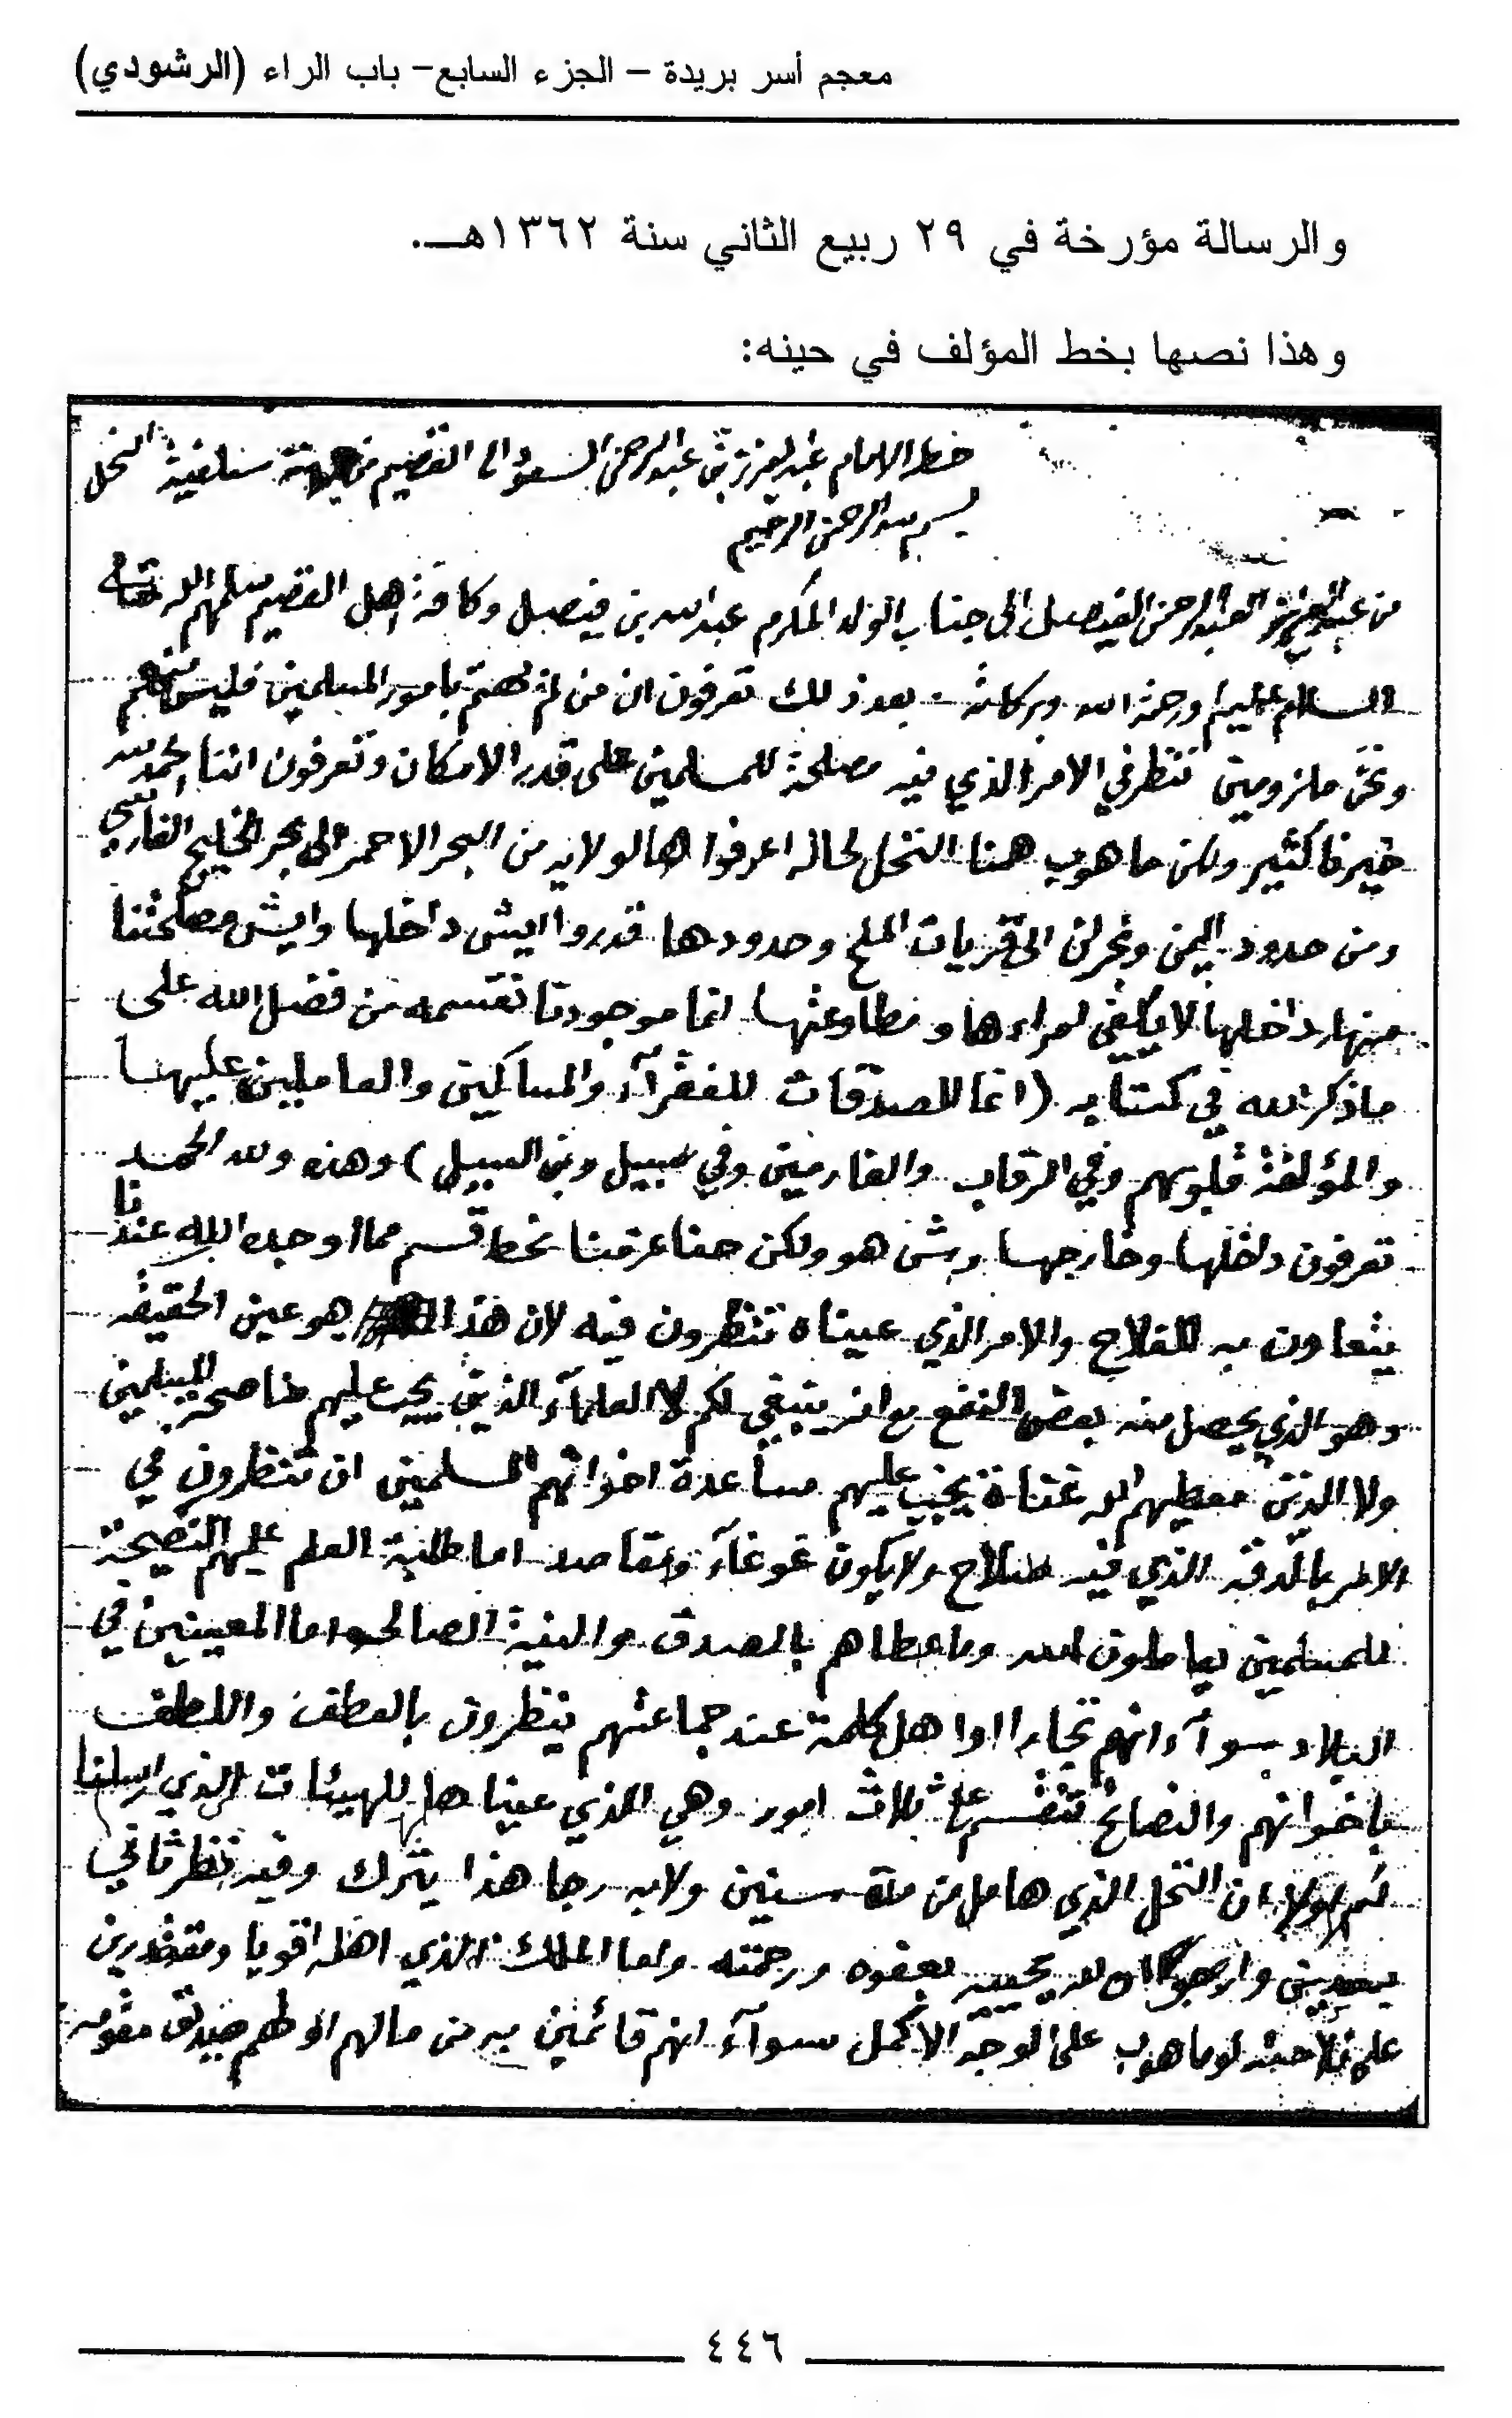 معجم أسر بريدة – الجزء السابع– باب الراء (الرشودي)
والرسالة مؤرخة في ٢٩ ربيع الثاني سنة ١٣٦٢هـ.
وهذا نصها بخط المؤلف في حينه:
خط الامام عبدالعزيز بن عبدالرحمن السعود الى القصيم من جهة النخل
بسم الله الرحمن الرحيم
من عبدالعزيز العبدالرحمن الفيصل الى جناب الولد المكرم عبدالله بن فيصل وكافة اهل القصيم سلمهم الله تعالى
السلام عليكم ورحمة الله وبركاته بعد ذلك تعرفون ان من لم يهتم بامور المسلمين فليس منهم
ونحن ملزومين ننظر في الامر الذي فيه مصلحة للمسلمين على قدر الامكان وتعرفون اننا الحمد لله
خيرنا كثير ولكن ما هوب همنا النخل لحاله اعرفوا هالولايه من البحر الاحمر الى بحر الخليج الفارسي
ومن حدود اليمن ونجران الى قريات الملح وحدودها قدروا ايش داخلها وايش مصلحتنا
منها داخلها لا يكفي لمراءها ومطاوعتها انما موجودنا نقسمه من فضل الله على
ما ذكر الله في كتابه (انما الصدقات للفقرآء والمساكين والعاملين عليها
والمؤلفة قلوبهم وفي الرقاب والغارمين وفي سبيل وبن السبيل) وهذه ولله الحمد
تعرفون داخلها وخارجها وش هو ولكن حنا عزمنا نحط قسم مما اوجده الله عندنا
يتعاون به الفلاح والامر الذي عيناه تنظرون فيه لان هذا هو عين الحقيقه
وهو الذي يحصل منه بعض النفع مع انه ينبغي لكم لا العلمآء الذين يجب عليهم مناصحة المسلمين
ولا الذين معطيهم الله غناة يجب عليهم مساعدة اخوانهم المسلمين ان تنظرون في
الامر بالدقه الذي فيه صلاح ولا يكون غوغآء ومقاصد اما طلبة العلم عليهم النصيحة
للمسلمين يعاملون الله وما اعطاهم بالصدق والنية الصالحه واما المعينين في
البلاد سوآء انهم تجارا اوا هل كلمة عند جماعتهم ينظرون بالعطف واللطف
باخوانهم والنصائح تنقسم على ثلاث امور وهي الذي عيناها للهيئات الذي ارسلنا
لكم اولا ان النخل الذي هامل من مدة سنين ولا به رجا هذا يترك وفيه نظر ثاني
بعدين وارجوا ان الله يحييه بعفوه ورحمته واما الملك الذي اهله اقويا ومقتدرين
على فلاحته لو ما هوب على الوجه الاكمل سوآء انهم قائمين به من مالهم او لهم صديق مقومه
٤٤٦